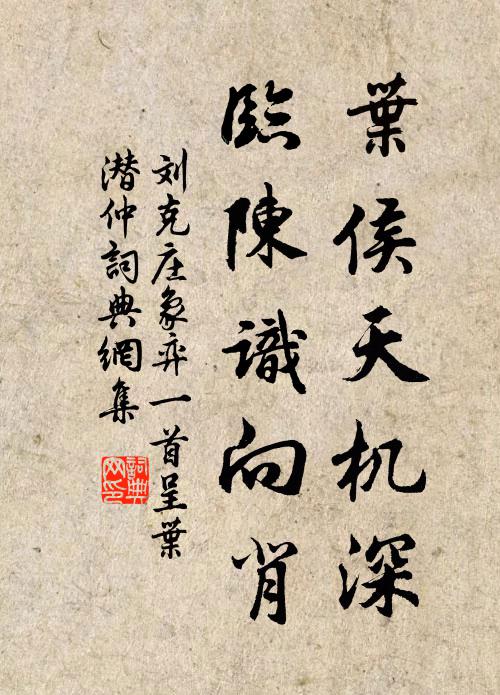 葉侯天机深
臨陳識向背
刘克庄象弈一首呈葉
潜仲詞典網集
詞典网印